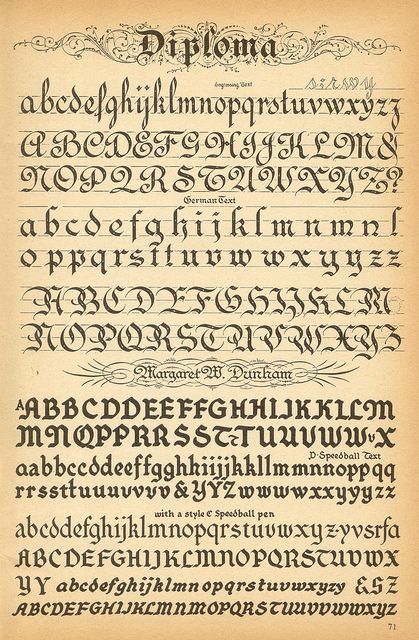 Diploma
Engrossing Text
s i r w y
abcdefghijklmnopqrstuvwxyzz
ABCDEFGHIJKLM&
NOPQRSTUVWXYZ?
German Text
abcdefghijklmnmnl
oppqrsttuvwwxyyzz
ABCDEFGHIJKLM
NOPQRSTUVWXYZ
Margaret W. Dunham
AABBCDDEEFFGHHIJKKLLM
MNQPPRRSSTTTUUUVWWVX
D-Speedball Text
aabbccddeeffgghhiijjkkllmmnnoppqq
rrssttuuuvvv&YYZwwwwxxyyyzz
with a style C Speedball pen
abcdefghijklmnopqrstuvwxyz-yvsrfa
ABCDEFGHIJKLMNOPQRSTUVWX
YY abcdefghijklmnopqrstuvwxyzy &SZ
ABCDEFGHIJKLMNMOPQRSTUVWXYZ
71